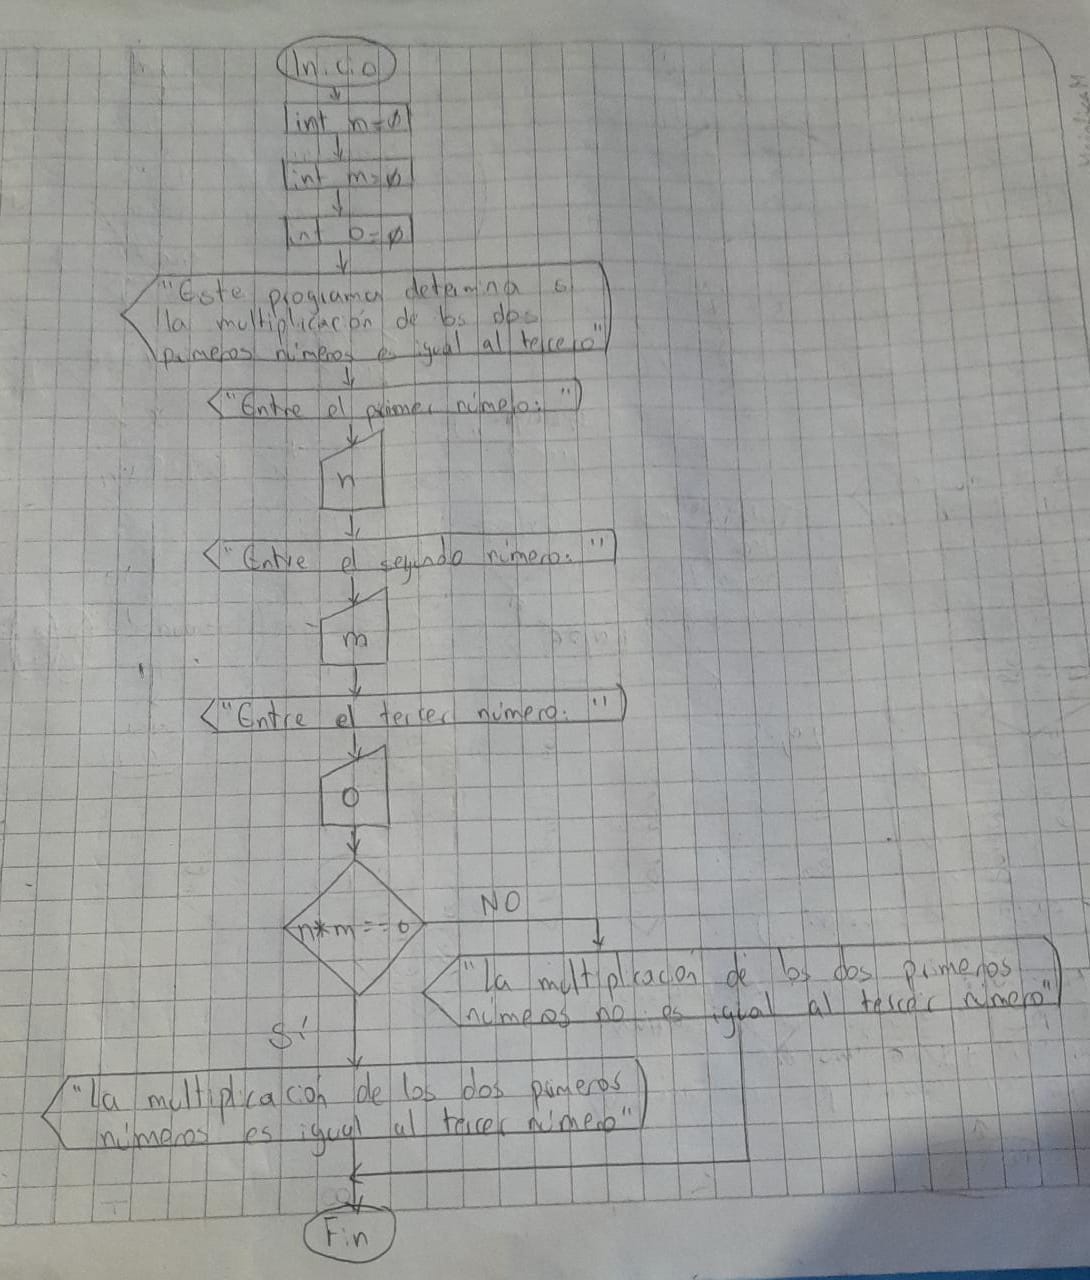 Inicio
int n=0
int m=0
int o=0
"Este programa determina si
la multiplicación de los dos
primeros números es igual al tercero"
"Entre el primer número: "
n
"Entre el segundo número: "
m
"Entre el tercer número: "
o
n*m==o
NO
"La multiplicación de los dos primeros
números no es igual al tercer número"
Sí
"La multiplicación de los dos primeros
números es igual al tercer número"
Fin